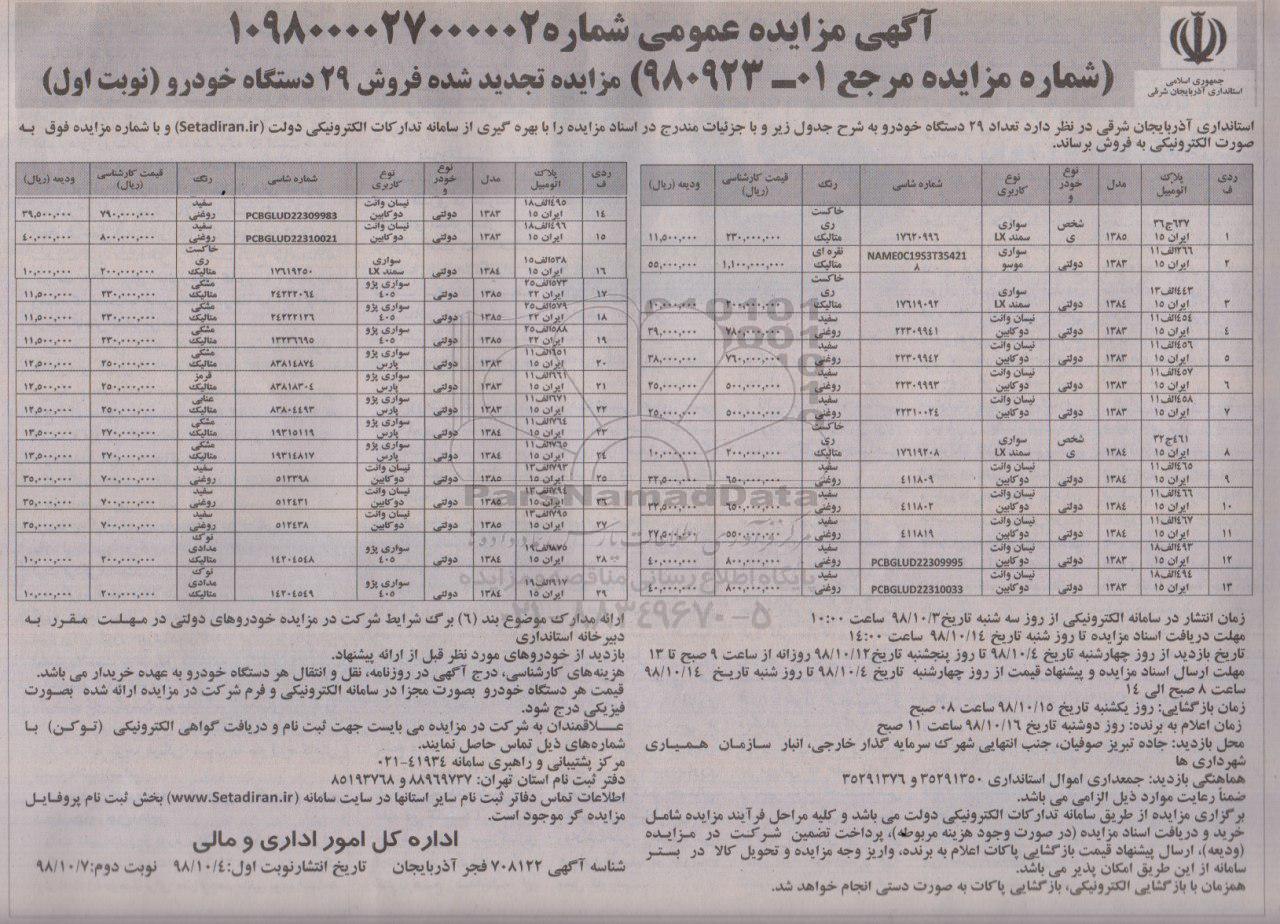 آگهی مزایده عمومی شماره ۱۰۹۸۰۰۰۰۲۷۰۰۰۰۰۲
(شماره مزایده مرجع ۰۱ـ ۹۸۰۹۲۳) مزایده تجدید شده فروش ۲۹ دستگاه خودرو (نوبت اول)
جمهوری اسلامی
استانداری آذربایجان شرقی
استانداری آذربایجان شرقی در نظر دارد تعداد ۲۹ دستگاه خودرو به شرح جدول زیر و با جزئیات مندرج در اسناد مزایده را با بهره گیری از سامانه تدارکات الکترونیکی دولت (Setadiran.ir) و با شماره مزایده فوق به
صورت الکترونیکی به فروش برساند.
ردیف پلاک اتومبیل مدل نوع خودرو نوع کاربری شماره شاسی رنگ قیمت کارشناسی (ریال) ودیعه (ریال)
۱ ۶۳۷ج۳۶ ایران ۱۵ ۱۳۸۵ شخصی سواری سمند LX ۱۷۶۲۰۹۹۶ خاکستری متالیک ۲۳۰,۰۰۰,۰۰۰ ۱۱,۵۰۰,۰۰۰
۲ ۲۶۶الف۱۱ ایران ۱۵ ۱۳۸۳ دولتی سواری موسو NAME0C19S3T35421۸ نقره ای متالیک ۱,۱۰۰,۰۰۰,۰۰۰ ۵۵,۰۰۰,۰۰۰
۳ ۴۴۳الف۱۳ ایران ۱۵ ۱۳۸۴ دولتی سواری سمند LX ۱۷۶۱۹۰۹۲ خاکستری متالیک ۲۰۰,۰۰۰,۰۰۰ ۱۰,۰۰۰,۰۰۰
۴ ۴۵۴الف۱۱ ایران ۱۵ ۱۳۸۳ دولتی نیسان وانت دوکابین ۲۲۳۰۹۹۴۱ سفید روغنی ۷۸۰,۰۰۰,۰۰۰ ۳۹,۰۰۰,۰۰۰
۵ ۴۵۶الف۱۱ ایران ۱۵ ۱۳۸۳ دولتی نیسان وانت دوکابین ۲۲۳۰۹۹۴۲ سفید روغنی ۷۶۰,۰۰۰,۰۰۰ ۳۸,۰۰۰,۰۰۰
۶ ۴۵۷الف۱۱ ایران ۱۵ ۱۳۸۳ دولتی نیسان وانت دوکابین ۲۲۳۰۹۹۹۳ سفید روغنی ۵۰۰,۰۰۰,۰۰۰ ۲۵,۰۰۰,۰۰۰
۷ ۴۵۸الف۱۱ ایران ۱۵ ۱۳۸۳ دولتی نیسان وانت دوکابین ۲۲۳۱۰۰۲۴ سفید روغنی ۵۰۰,۰۰۰,۰۰۰ ۲۵,۰۰۰,۰۰۰
۸ ۴۶۱ج۳۲ ایران ۱۵ ۱۳۸۴ شخصی سواری سمند LX ۱۷۶۱۹۲۰۸ خاکستری متالیک ۲۰۰,۰۰۰,۰۰۰ ۱۰,۰۰۰,۰۰۰
۹ ۴۶۵الف۱۱ ایران ۱۵ ۱۳۸۳ دولتی نیسان وانت دوکابین ۴۱۱۸۰۹ سفید روغنی ۶۵۰,۰۰۰,۰۰۰ ۳۲,۵۰۰,۰۰۰
۱۰ ۴۶۶الف۱۱ ایران ۱۵ ۱۳۸۳ دولتی نیسان وانت دوکابین ۴۱۱۸۰۲ سفید روغنی ۶۵۰,۰۰۰,۰۰۰ ۳۲,۵۰۰,۰۰۰
۱۱ ۴۶۷الف۱۱ ایران ۱۵ ۱۳۸۳ دولتی نیسان وانت دوکابین ۴۱۱۸۱۹ سفید روغنی ۵۵۰,۰۰۰,۰۰۰ ۲۷,۵۰۰,۰۰۰
۱۲ ۴۹۳الف۱۸ ایران ۱۵ ۱۳۸۳ دولتی نیسان وانت دوکابین PCBGLUD22309995 سفید روغنی ۸۰۰,۰۰۰,۰۰۰ ۴۰,۰۰۰,۰۰۰
۱۳ ۴۹۴الف۱۸ ایران ۱۵ ۱۳۸۳ دولتی نیسان وانت دوکابین PCBGLUD22310033 سفید روغنی ۸۰۰,۰۰۰,۰۰۰ ۴۰,۰۰۰,۰۰۰
ردیف پلاک اتومبیل مدل نوع خودرو نوع کاربری شماره شاسی رنگ قیمت کارشناسی (ریال) ودیعه (ریال)
۱۴ ۴۹۵الف۱۸ ایران ۱۵ ۱۳۸۳ دولتی نیسان وانت دوکابین PCBGLUD22309983 سفید روغنی ۷۹۰,۰۰۰,۰۰۰ ۳۹,۵۰۰,۰۰۰
۱۵ ۴۹۶الف۱۸ ایران ۱۵ ۱۳۸۳ دولتی نیسان وانت دوکابین PCBGLUD22310021 سفید روغنی ۸۰۰,۰۰۰,۰۰۰ ۴۰,۰۰۰,۰۰۰
۱۶ ۵۳۸الف۱۵ ایران ۱۵ ۱۳۸۴ دولتی سواری سمند LX ۱۷۶۱۹۲۵۰ خاکستری متالیک ۲۰۰,۰۰۰,۰۰۰ ۱۰,۰۰۰,۰۰۰
۱۷ ۵۷۳الف۲۵ ایران ۲۲ ۱۳۸۵ دولتی سواری پژو ۴۰۵ ۲۴۲۲۲۰۶۴ مشکی متالیک ۲۳۰,۰۰۰,۰۰۰ ۱۱,۵۰۰,۰۰۰
۱۸ ۵۷۹الف۲۵ ایران ۲۲ ۱۳۸۵ دولتی سواری پژو ۴۰۵ ۲۴۲۲۲۱۲۶ مشکی متالیک ۲۳۰,۰۰۰,۰۰۰ ۱۱,۵۰۰,۰۰۰
۱۹ ۵۸۸الف۲۵ ایران ۲۲ ۱۳۸۵ دولتی سواری پژو ۴۰۵ ۱۳۲۳۶۶۹۵ مشکی متالیک ۲۳۰,۰۰۰,۰۰۰ ۱۱,۵۰۰,۰۰۰
۲۰ ۶۵۱الف۱۱ ایران ۱۵ ۱۳۸۳ دولتی سواری پژو پارس ۸۳۸۱۴۸۷۴ مشکی متالیک ۲۵۰,۰۰۰,۰۰۰ ۱۲,۵۰۰,۰۰۰
۲۱ ۶۶۱الف۱۱ ایران ۱۵ ۱۳۸۳ دولتی سواری پژو پارس ۸۳۸۱۸۳۰۴ قرمز متالیک ۲۵۰,۰۰۰,۰۰۰ ۱۲,۵۰۰,۰۰۰
۲۲ ۶۷۱الف۱۱ ایران ۱۵ ۱۳۸۳ دولتی سواری پژو پارس ۸۳۸۰۴۴۹۳ عنابی متالیک ۲۵۰,۰۰۰,۰۰۰ ۱۲,۵۰۰,۰۰۰
۲۳ ۷۶۴الف۱۱ ایران ۱۵ ۱۳۸۴ دولتی سواری پژو پارس ۱۹۳۱۵۱۱۹ مشکی متالیک ۲۷۰,۰۰۰,۰۰۰ ۱۳,۵۰۰,۰۰۰
۲۴ ۷۶۵الف۱۱ ایران ۱۵ ۱۳۸۴ دولتی سواری پژو پارس ۱۹۳۱۴۸۱۷ مشکی متالیک ۲۷۰,۰۰۰,۰۰۰ ۱۳,۵۰۰,۰۰۰
۲۵ ۷۹۳الف۱۳ ایران ۱۵ ۱۳۸۵ دولتی نیسان وانت دوکابین ۵۱۲۳۹۸ سفید روغنی ۷۰۰,۰۰۰,۰۰۰ ۳۵,۰۰۰,۰۰۰
۲۶ ۷۹۴الف۱۳ ایران ۱۵ ۱۳۸۵ دولتی نیسان وانت دوکابین ۵۱۲۴۳۱ سفید روغنی ۷۰۰,۰۰۰,۰۰۰ ۳۵,۰۰۰,۰۰۰
۲۷ ۷۹۵الف۱۳ ایران ۱۵ ۱۳۸۵ دولتی نیسان وانت دوکابین ۵۱۲۴۳۸ سفید روغنی ۷۰۰,۰۰۰,۰۰۰ ۳۵,۰۰۰,۰۰۰
۲۸ ۸۷۵الف۱۹ ایران ۱۵ ۱۳۸۴ دولتی سواری پژو ۴۰۵ ۱۴۲۰۴۵۴۸ نوک مدادی متالیک ۲۰۰,۰۰۰,۰۰۰ ۱۰,۰۰۰,۰۰۰
۲۹ ۹۱۷الف۱۹ ایران ۱۵ ۱۳۸۴ دولتی سواری پژو ۴۰۵ ۱۴۲۰۴۵۴۹ نوک مدادی متالیک ۲۰۰,۰۰۰,۰۰۰ ۱۰,۰۰۰,۰۰۰
زمان انتشار در سامانه الکترونیکی از روز سه شنبه تاریخ ۹۸/۱۰/۳ ساعت ۱۰:۰۰
مهلت دریافت اسناد مزایده تا روز شنبه تاریخ ۹۸/۱۰/۱۴ ساعت ۱۴:۰۰
تاریخ بازدید از روز چهارشنبه تاریخ ۹۸/۱۰/۴ تا روز پنجشنبه تاریخ ۹۸/۱۰/۱۲ روزانه از ساعت ۹ صبح تا ۱۳
مهلت ارسال اسناد مزایده و پیشنهاد قیمت از روز چهارشنبه تاریخ ۹۸/۱۰/۴ تا روز شنبه تاریخ ۹۸/۱۰/۱۴
ساعت ۸ صبح الی ۱۴
زمان بازگشایی: روز یکشنبه تاریخ ۹۸/۱۰/۱۵ ساعت ۰۸ صبح
زمان اعلام به برنده: روز دوشنبه تاریخ ۹۸/۱۰/۱۶ ساعت ۱۱ صبح
محل بازدید: جاده تبریز صوفیان، جنب انتهایی شهرک سرمایه گذار خارجی، انبار سازمان همیاری
شهرداری ها
هماهنگی بازدید: جمعداری اموال استانداری ۳۵۲۹۱۳۵۰ و ۳۵۲۹۱۳۷۶
ضمناً رعایت موارد ذیل الزامی می باشد.
برگزاری مزایده از طریق سامانه تدارکات الکترونیکی دولت می باشد و کلیه مراحل فرآیند مزایده شامل
خرید و دریافت اسناد مزایده (در صورت وجود هزینه مربوطه)، پرداخت تضمین شرکت در مزایده
(ودیعه)، ارسال پیشنهاد قیمت بازگشایی پاکات اعلام به برنده، واریز وجه مزایده و تحویل کالا در بستر
سامانه از این طریق امکان پذیر می باشد.
همزمان با بازگشایی الکترونیکی، بازگشایی پاکات به صورت دستی انجام خواهد شد.
ارائه مدارک موضوع بند (۶) برگ شرایط شرکت در مزایده خودروهای دولتی در مهلت مقرر به
دبیرخانه استانداری
بازدید از خودروهای مورد نظر قبل از ارائه پیشنهاد.
هزینه‌های کارشناسی، درج آگهی در روزنامه، نقل و انتقال هر دستگاه خودرو به عهده خریدار می باشد.
قیمت هر دستگاه خودرو بصورت مجزا در سامانه الکترونیکی و فرم شرکت در مزایده ارائه شده بصورت
فیزیکی درج شود.
علاقمندان به شرکت در مزایده می بایست جهت ثبت نام و دریافت گواهی الکترونیکی (توکن) با
شماره‌های ذیل تماس حاصل نمایند.
مرکز پشتیبانی و راهبری سامانه ۴۱۹۳۴-۰۲۱
دفتر ثبت نام استان تهران: ۸۸۹۶۹۷۳۷ و ۸۵۱۹۳۷۶۸
اطلاعات تماس دفاتر ثبت نام سایر استانها در سایت سامانه (www.Setadiran.ir) بخش ثبت نام پروفایل
مزایده گر موجود است.
اداره کل امور اداری و مالی
شناسه آگهی ۷۰۸۱۲۲ فجر آذربایجان تاریخ انتشار نوبت اول: ۹۸/۱۰/۴ نوبت دوم: ۹۸/۱۰/۷
ParsNamadData
پایگاه اطلاع رسانی مناقصه و مزایده
۰۲۱-۸۸۳۴۹۶۷۰-۵